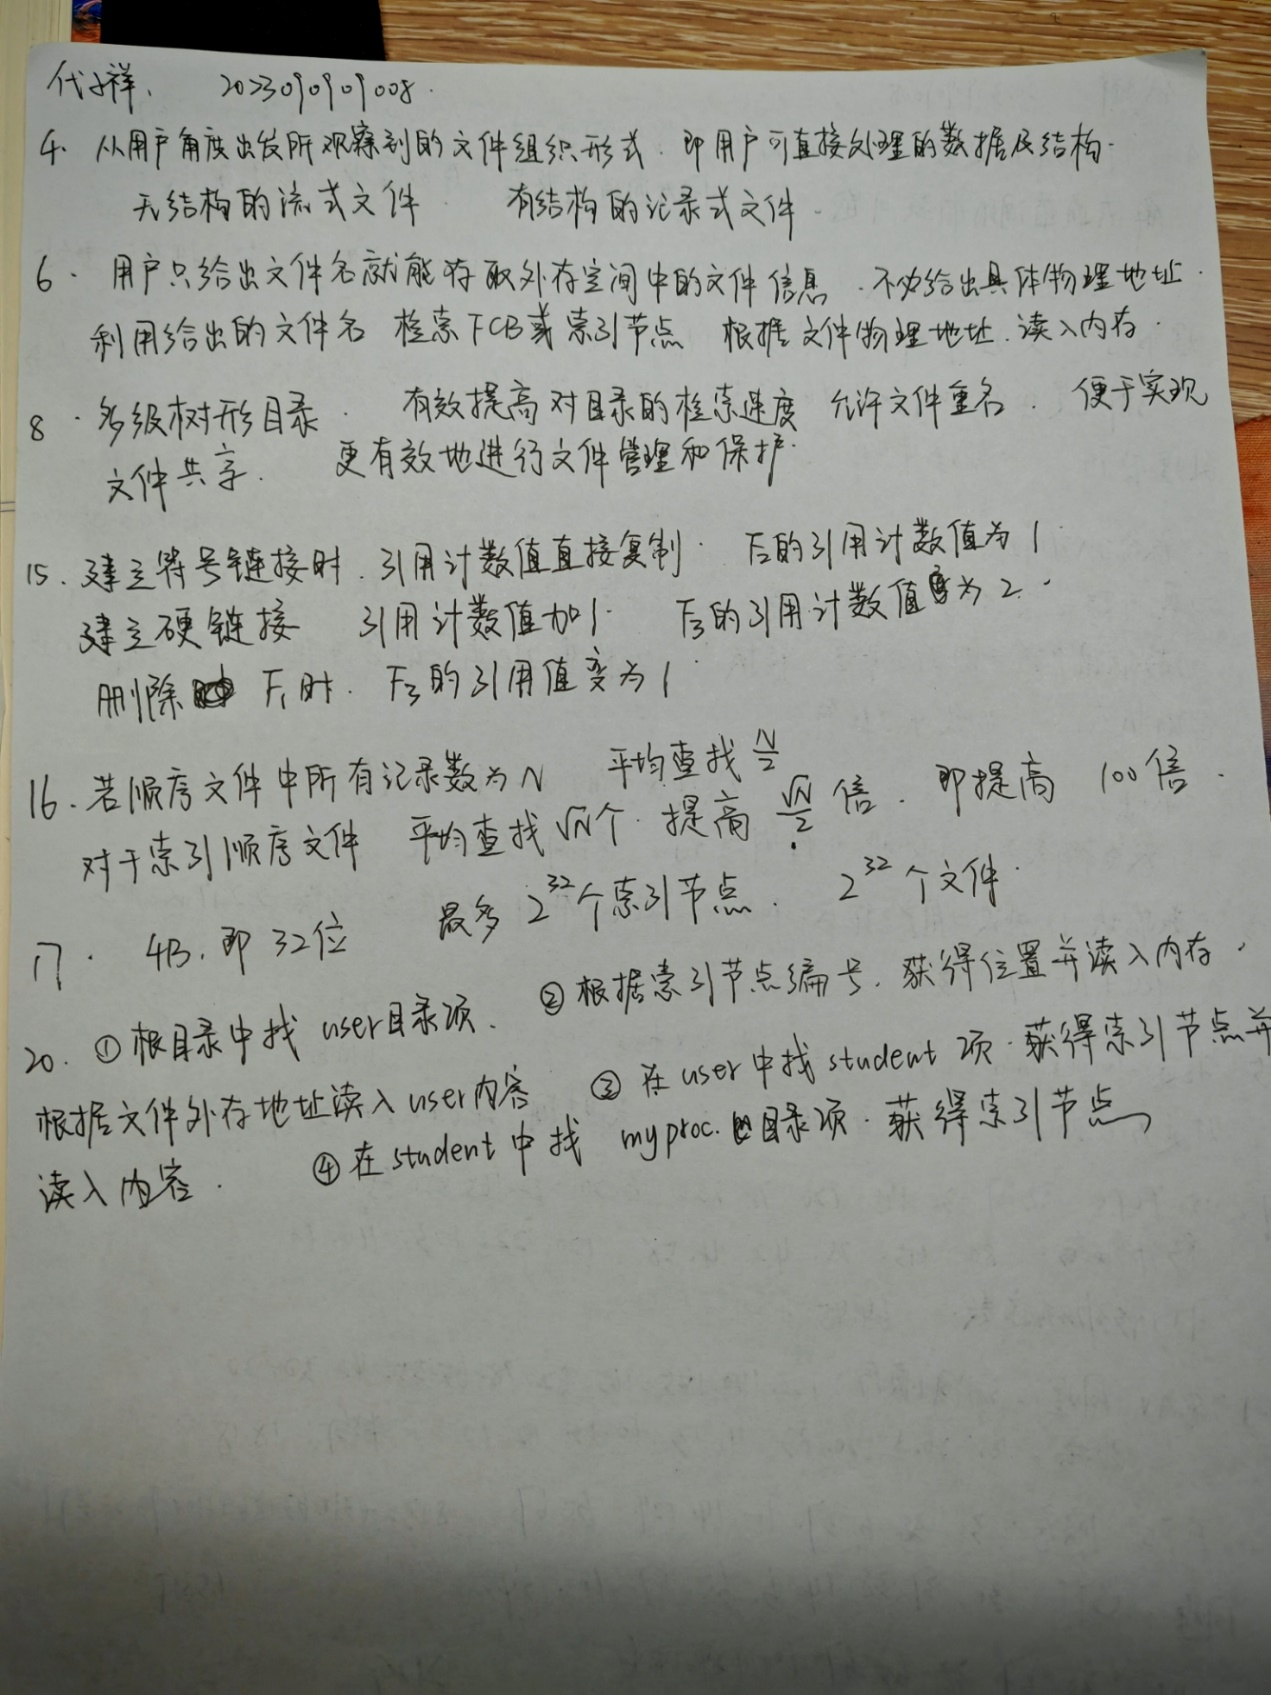 代子祥. 2023090909008.
4. 从用户角度出发所观察到的文件组织形式. 即用户可直接处理的数据及结构.
无结构的流式文件 有结构的记录式文件.
6. 用户只给出文件名就能存取外存空间中的文件信息. 不必给出具体物理地址.
利用给出的文件名 检索FCB或索引节点 根据文件物理地址. 读入内存.
8. 多级树形目录. 有效提高对目录的检索速度 允许文件重名. 便于实现
文件共享. 更有效地进行文件管理和保护.
15. 建立符号链接时. 引用计数值直接复制. F2的引用计数值为1.
建立硬链接 引用计数值加1. F3的引用计数值为2.
删除 F1时. F3的引用值变为1.
16. 若顺序文件中所有记录数为N 平均查找 N/2
对于索引顺序文件 平均查找√N个. 提高 √N/2 倍. 即提高 100倍.
17. 4B. 即32位 最多 2^32个索引节点. 2^32个文件.
20. ①根目录中找 user目录项. ②根据索引节点编号. 获得位置并读入内存.
根据文件外存地址读入user内容 ③在user中找student项. 获得索引节点并
读入内容. ④在student中找 myproc.目录项. 获得索引节点